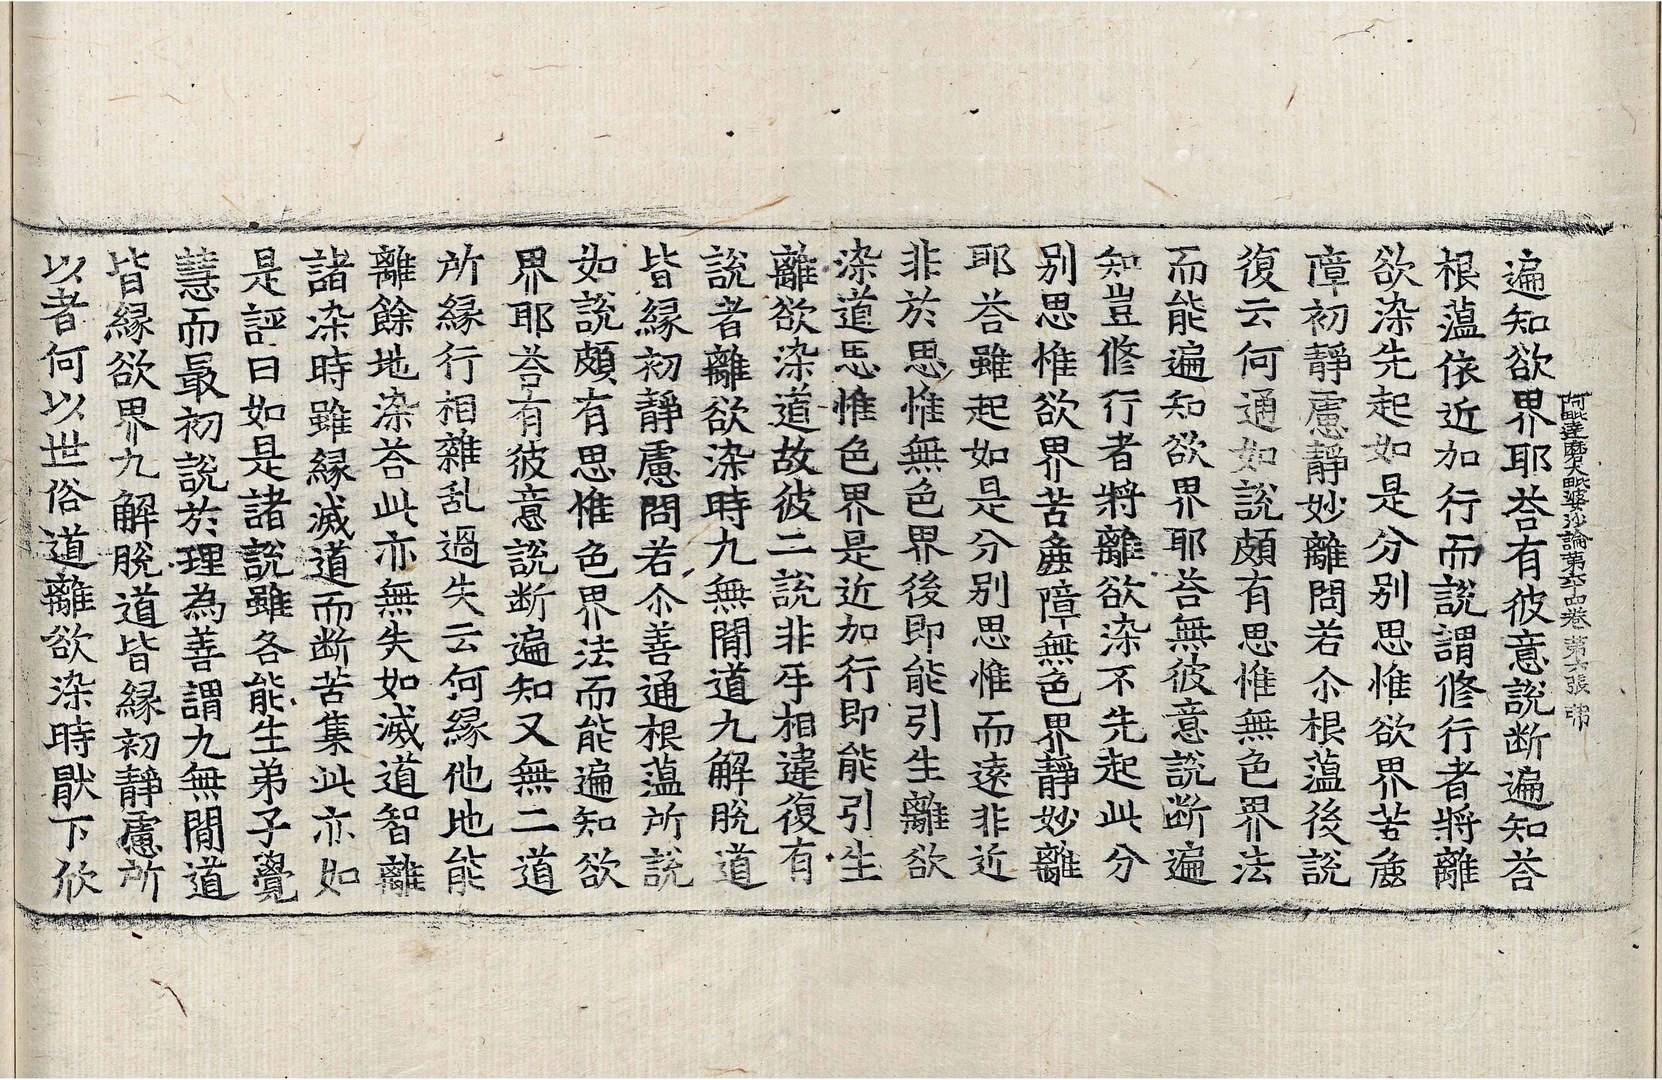 阿毗達磨大毗婆沙論第六十四卷 第六張 弗
遍知欲界耶荅有彼意説断遍知荅
根蕰依近加行而説謂修行者將離
欲染先起如是分别思惟欲界苦麁
障初靜慮靜妙離問若尒根蕰後説
復云何通如説頗有思惟無色界法
而能遍知欲界耶荅無彼意説断遍
知豈修行者將離欲染不先起此分
别思惟欲界苦麁障無色界靜妙離
耶荅雖起如是分别思惟而遠非近
非於思惟無色界後即能引生離欲
染道思惟色界是近加行即能引生
離欲染道故彼二説非互相違復有
説者離欲染時九無閒道九解脱道
皆縁初靜慮問若尒善通根蕰所説
如説頗有思惟色界法而能遍知欲
界耶荅有彼意説断遍知又無二道
所縁行相雜乱過失云何縁他地能
離餘地染荅此亦無失如滅道智離
諸染時雖縁滅道而断苦集此亦如
是評曰如是諸説雖各能生弟子覺
慧而最初説於理為善謂九無閒道
皆縁欲界九解脱道皆縁初靜慮所
以者何以世俗道離欲染時猒下欣